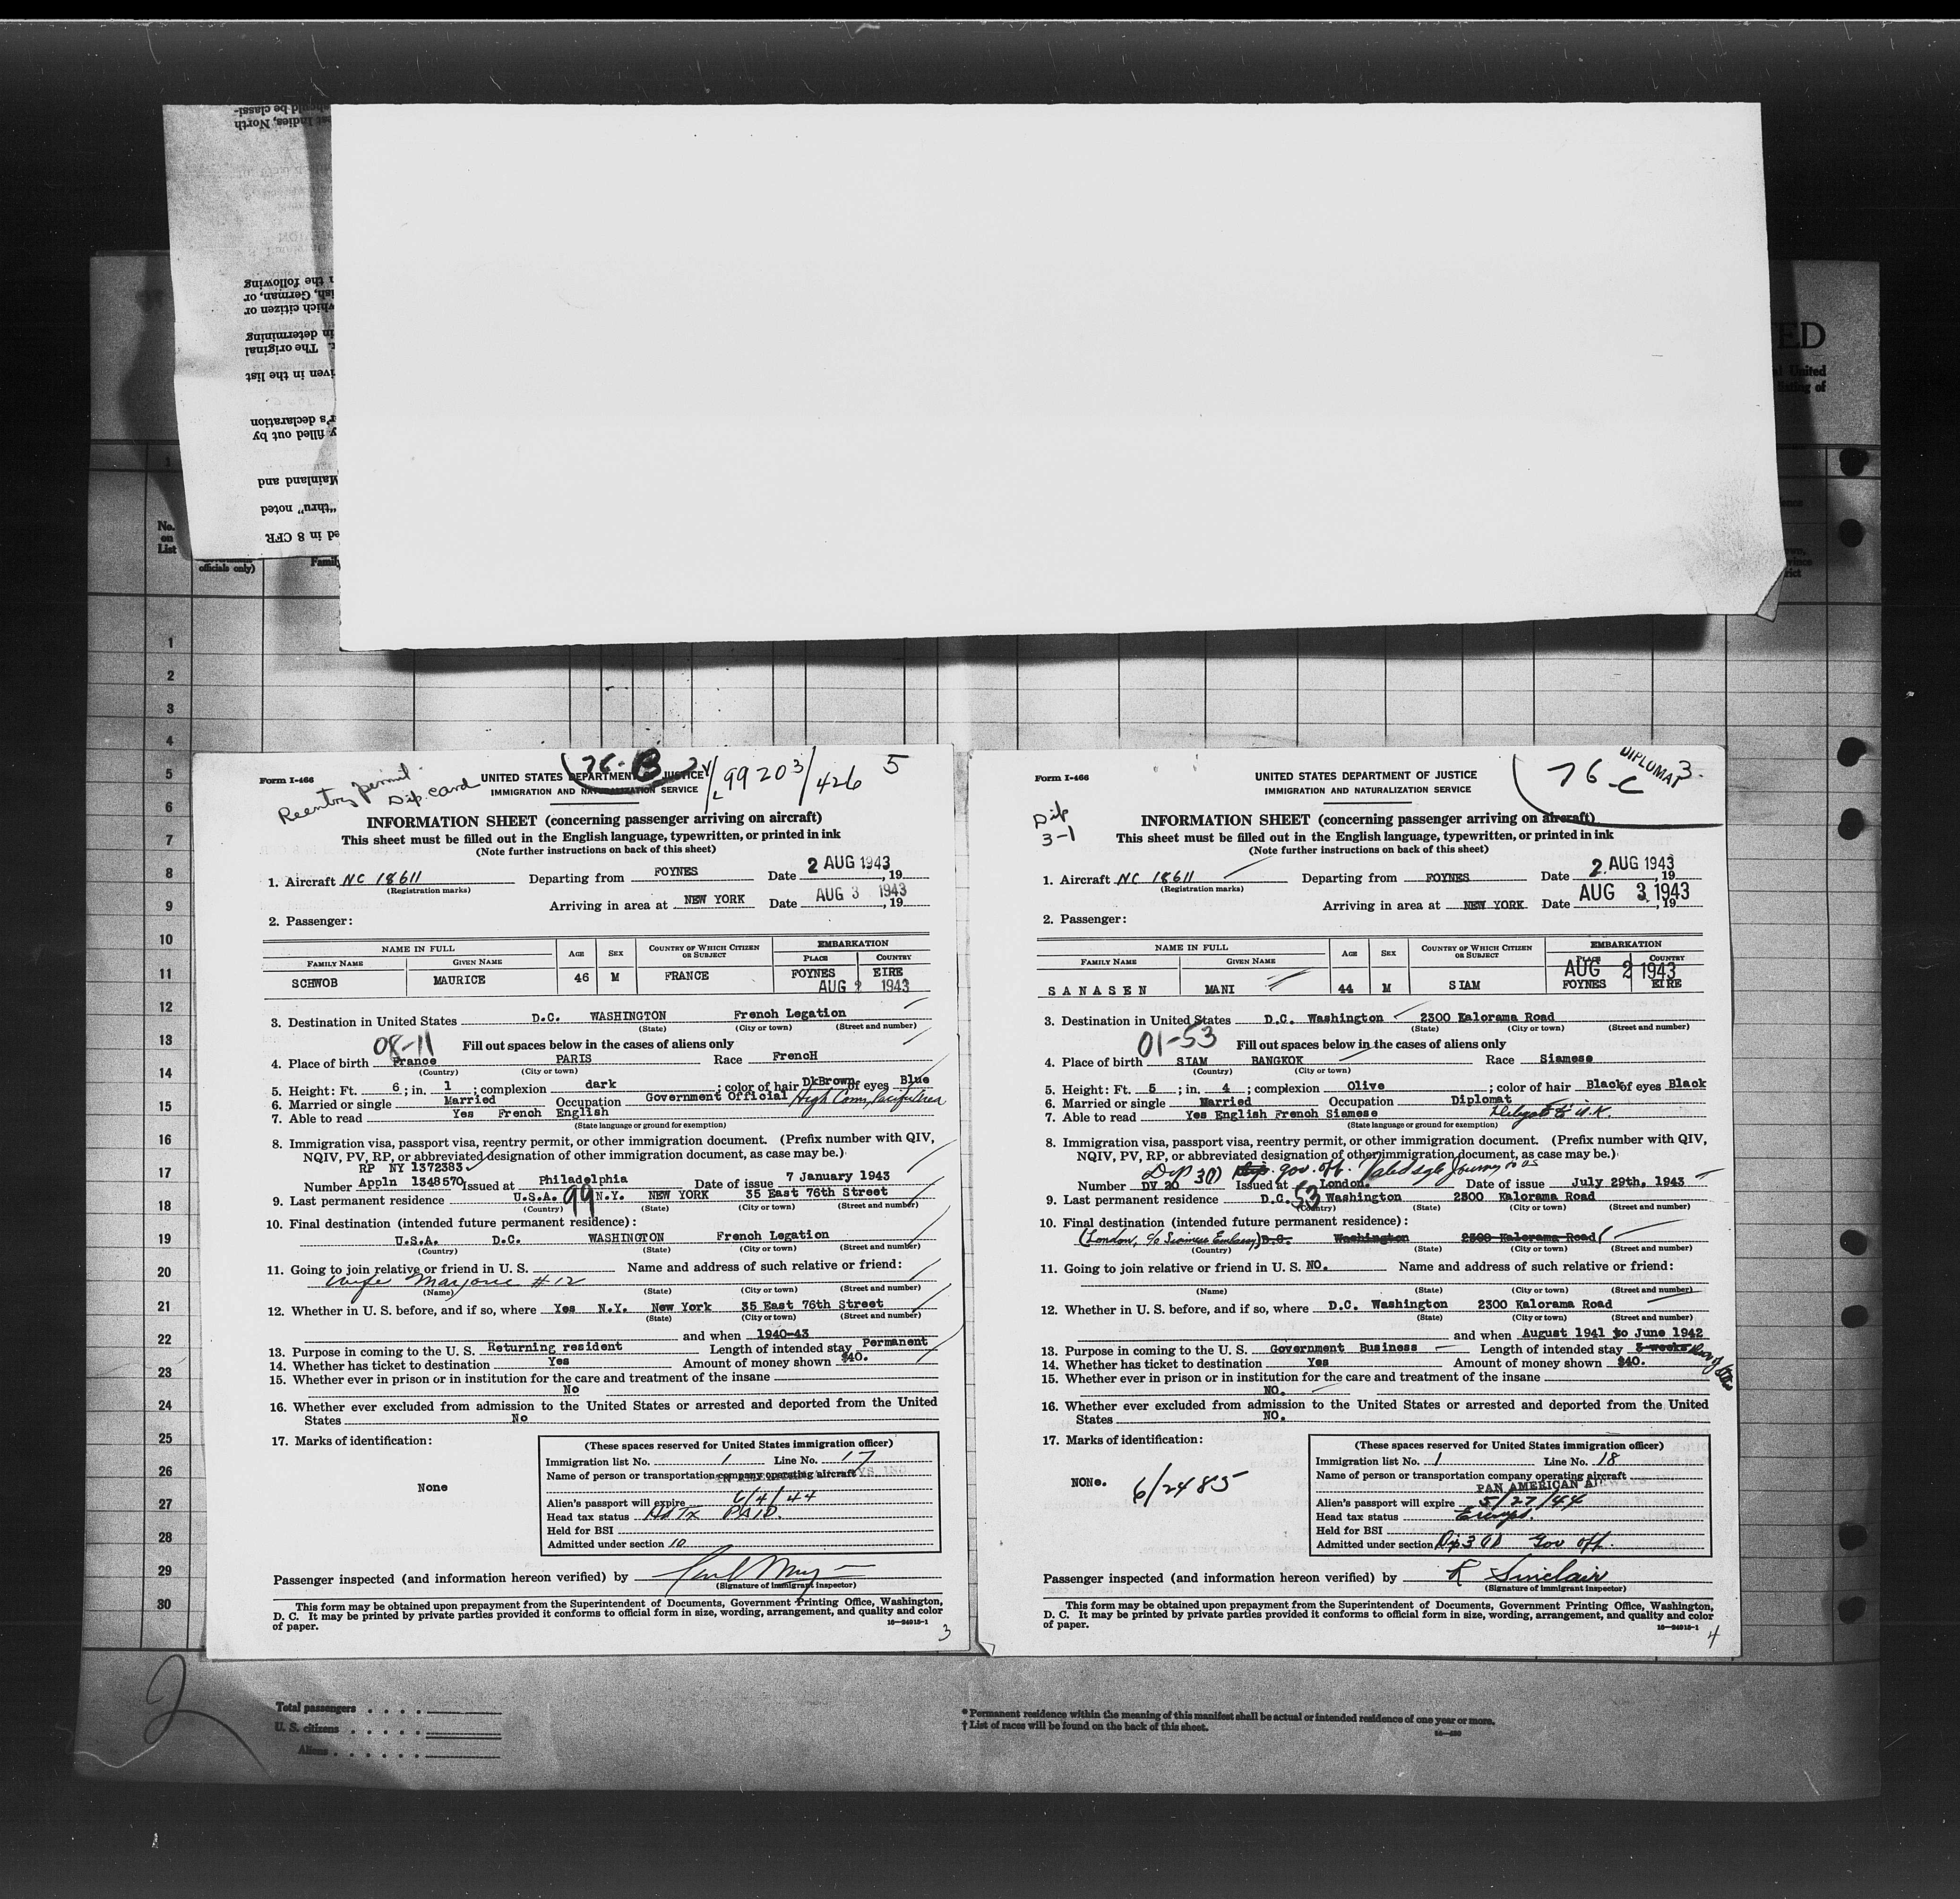 ED
al United
listing of
No.
on
List
officials only)
Family
1
2
3
4
5
6
7
8
9
10
11
12
13
14
15
16
17
18
19
20
21
22
23
24
25
26
27
28
29
30
Form I-466
Reentry permit
Dip. card
76-B
99203/426
5
UNITED STATES DEPARTMENT OF JUSTICE
IMMIGRATION AND NATURALIZATION SERVICE
INFORMATION SHEET (concerning passenger arriving on aircraft)
This sheet must be filled out in the English language, typewritten, or printed in ink
(Note further instructions on back of this sheet)
1. Aircraft NC 18611 Departing from FOYNES Date 2 AUG 1943, 19
(Registration marks)
Arriving in area at NEW YORK Date AUG 3 1943, 19
2. Passenger:
NAME IN FULL AGE SEX COUNTRY OF WHICH CITIZEN OR SUBJECT EMBARKATION
FAMILY NAME GIVEN NAME PLACE COUNTRY
SCHWOB MAURICE 46 M FRANCE FOYNES EIRE
AUG 2 1943
3. Destination in United States D.C. WASHINGTON French Legation
(State) (City or town) (Street and number)
08-11
Fill out spaces below in the cases of aliens only
4. Place of birth France PARIS Race FrencH
(Country) (City or town)
5. Height: Ft. 6; in. 1; complexion dark; color of hair DkBrown of eyes Blue
6. Married or single Married Occupation Government Official High Comm.
7. Able to read Yes French English
(State language or ground for exemption)
8. Immigration visa, passport visa, reentry permit, or other immigration document. (Prefix number with QIV,
NQIV, PV, RP, or abbreviated designation of other immigration document, as case may be.)
RP NY 1372383
Number Appln 1348570 Issued at Philadelphia Date of issue 7 January 1943
9. Last permanent residence U.S.A. 99 N.Y. NEW YORK 35 East 76th Street
(Country) (State) (City or town) (Street and number)
10. Final destination (intended future permanent residence):
U.S.A. D.C. WASHINGTON French Legation
(Country) (State) (City or town) (Street and number)
11. Going to join relative or friend in U. S. Name and address of such relative or friend:
Wife Marjorie #12
(Name) (State) (City or town) (Street and number)
12. Whether in U. S. before, and if so, where Yes N.Y. New York 35 East 76th Street
(State) (City or town) (Street and number)
and when 1940-43
13. Purpose in coming to the U. S. Returning resident Length of intended stay Permanent
14. Whether has ticket to destination Yes Amount of money shown $40.
15. Whether ever in prison or in institution for the care and treatment of the insane
No
16. Whether ever excluded from admission to the United States or arrested and deported from the United
States No
17. Marks of identification:
None
(These spaces reserved for United States immigration officer)
Immigration list No. 1 Line No. 17
Name of person or transportation company operating aircraft
Alien's passport will expire 6/4/44
Head tax status Hd Tx PAID.
Held for BSI
Admitted under section 10
Passenger inspected (and information hereon verified) by
(Signature of immigrant inspector)
This form may be obtained upon prepayment from the Superintendent of Documents, Government Printing Office, Washington,
D. C. It may be printed by private parties provided it conforms to official form in size, wording, arrangement, and quality and color
of paper.
16—24915-1
3
Form I-466
Dip
3-1
76-C
DIPLOMAT
3.
UNITED STATES DEPARTMENT OF JUSTICE
IMMIGRATION AND NATURALIZATION SERVICE
INFORMATION SHEET (concerning passenger arriving on aircraft)
This sheet must be filled out in the English language, typewritten, or printed in ink
(Note further instructions on back of this sheet)
1. Aircraft NC 18611 Departing from FOYNES Date 2. AUG 1943, 19
(Registration marks)
Arriving in area at NEW YORK Date AUG 3 1943, 19
2. Passenger:
NAME IN FULL AGE SEX COUNTRY OF WHICH CITIZEN OR SUBJECT EMBARKATION
FAMILY NAME GIVEN NAME PLACE COUNTRY
AUG 2 1943
SANASEN MANI 44 M SIAM FOYNES EIRE
3. Destination in United States D.C. Washington 2300 Kalorama Road
(State) (City or town) (Street and number)
01-53
Fill out spaces below in the cases of aliens only
4. Place of birth SIAM BANGKOK Race Siamese
(Country) (City or town)
5. Height: Ft. 5; in. 4; complexion Olive; color of hair Black of eyes Black
6. Married or single Married Occupation Diplomat
7. Able to read Yes English French Siamese
(State language or ground for exemption)
8. Immigration visa, passport visa, reentry permit, or other immigration document. (Prefix number with QIV,
NQIV, PV, RP, or abbreviated designation of other immigration document, as case may be.)
Dip 3(1) gov. off.
Number DV 20 Issued at London. Date of issue July 29th, 1943
9. Last permanent residence D.C. 53 Washington 2300 Kalorama Road
(Country) (State) (City or town) (Street and number)
10. Final destination (intended future permanent residence):
(London, c/o Siamese Embassy) D.C. Washington 2300 Kalorama Road
(Country) (State) (City or town) (Street and number)
11. Going to join relative or friend in U. S. NO. Name and address of such relative or friend:
(Name) (State) (City or town) (Street and number)
12. Whether in U. S. before, and if so, where D.C. Washington 2300 Kalorama Road
(State) (City or town) (Street and number)
and when August 1941 to June 1942
13. Purpose in coming to the U. S. Government Business Length of intended stay 3 weeks
14. Whether has ticket to destination Yes Amount of money shown $40.
15. Whether ever in prison or in institution for the care and treatment of the insane
NO.
16. Whether ever excluded from admission to the United States or arrested and deported from the United
States NO.
17. Marks of identification:
NONe.
6/2485
(These spaces reserved for United States immigration officer)
Immigration list No. 1 Line No. 18
Name of person or transportation company operating aircraft
PAN AMERICAN AIRWAYS INC
Alien's passport will expire 5/27/44
Head tax status Exempt.
Held for BSI
Admitted under section Dip 3(1) Gov off.
Passenger inspected (and information hereon verified) by R Sinclair
(Signature of immigrant inspector)
This form may be obtained upon prepayment from the Superintendent of Documents, Government Printing Office, Washington,
D. C. It may be printed by private parties provided it conforms to official form in size, wording, arrangement, and quality and color
of paper.
16—24915-1
4
2
Total passengers
U. S. citizens
Aliens
* Permanent residence within the meaning of this manifest shall be actual or intended residence of one year or more.
† List of races will be found on the back of this sheet.